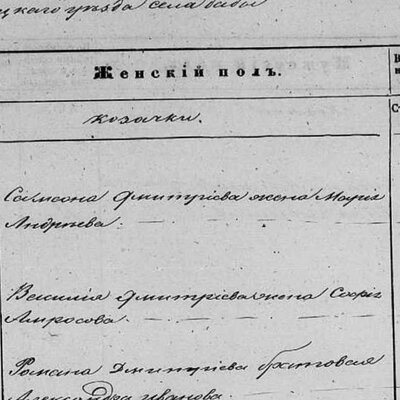 цкаго уѣзда села бабы
Женскій полъ.
козачки.
Самсона Дмитріева жена Марія
Андрѣева.
Василія Дмитріева жена Софія
Амросова
Романа Дмитріева братовая
Александра иванова.